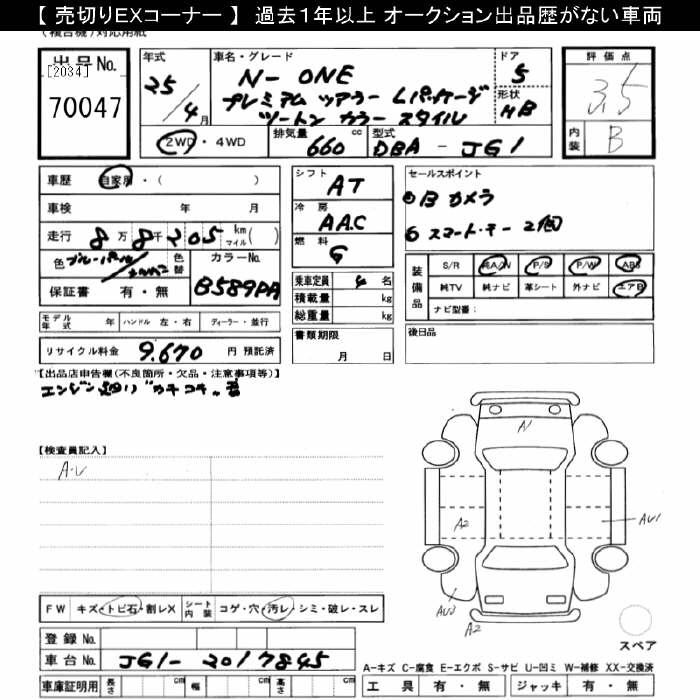 【 売切りEXコーナー 】 過去1年以上 オークション出品歴がない車両
(複合機)対応用紙
出品No. [2034] 70047
年式 25/4月
車名・グレード N-ONE
プレミアム ツアラー Lパッケージ
ツートン カラー スタイル
ドア 5
形状 HB
評価点 3.5
内装 B
2WD・4WD
排気量 660 cc
型式 DBA-JG1
車歴 自家用・( )
車検 年 月
走行 8万8千205 km マイル( )
色 ブルーパール/
色替
カラーNo. B589PA
保証書 有・無
シフト AT
冷房 AAC
燃料 G
乗車定員 4 名
積載量 kg
総重量 kg
書類期限 月 日
セールスポイント
Bカメラ
スマートキー 2個
装備品 S/R 純A/W P/S P/W ABS
純TV 純ナビ 革シート 外ナビ エアB
ナビ型番:
後日品
モデル年式 年 ハンドル 左・右 ディーラー・並行
リサイクル料金 9,670 円 預託済
【出品店申告欄(不良箇所・欠品・注意事項等)】
エンジン廻り"カチコチ"音
【検査員記入】
A・U
A1
A2
AU1
A2
FW キズ・トビ石・割レX シート内装 コゲ・穴・汚レ・シミ・破レ・スレ
スペア
登録No.
車台No. JG1-2017845
A-キズ C-腐食 E-エクボ S-サビ U-凹ミ W-補修 XX-交換済
車庫証明用 長さ cm 幅 cm 高さ cm
工具 有・無 ジャッキ 有・無